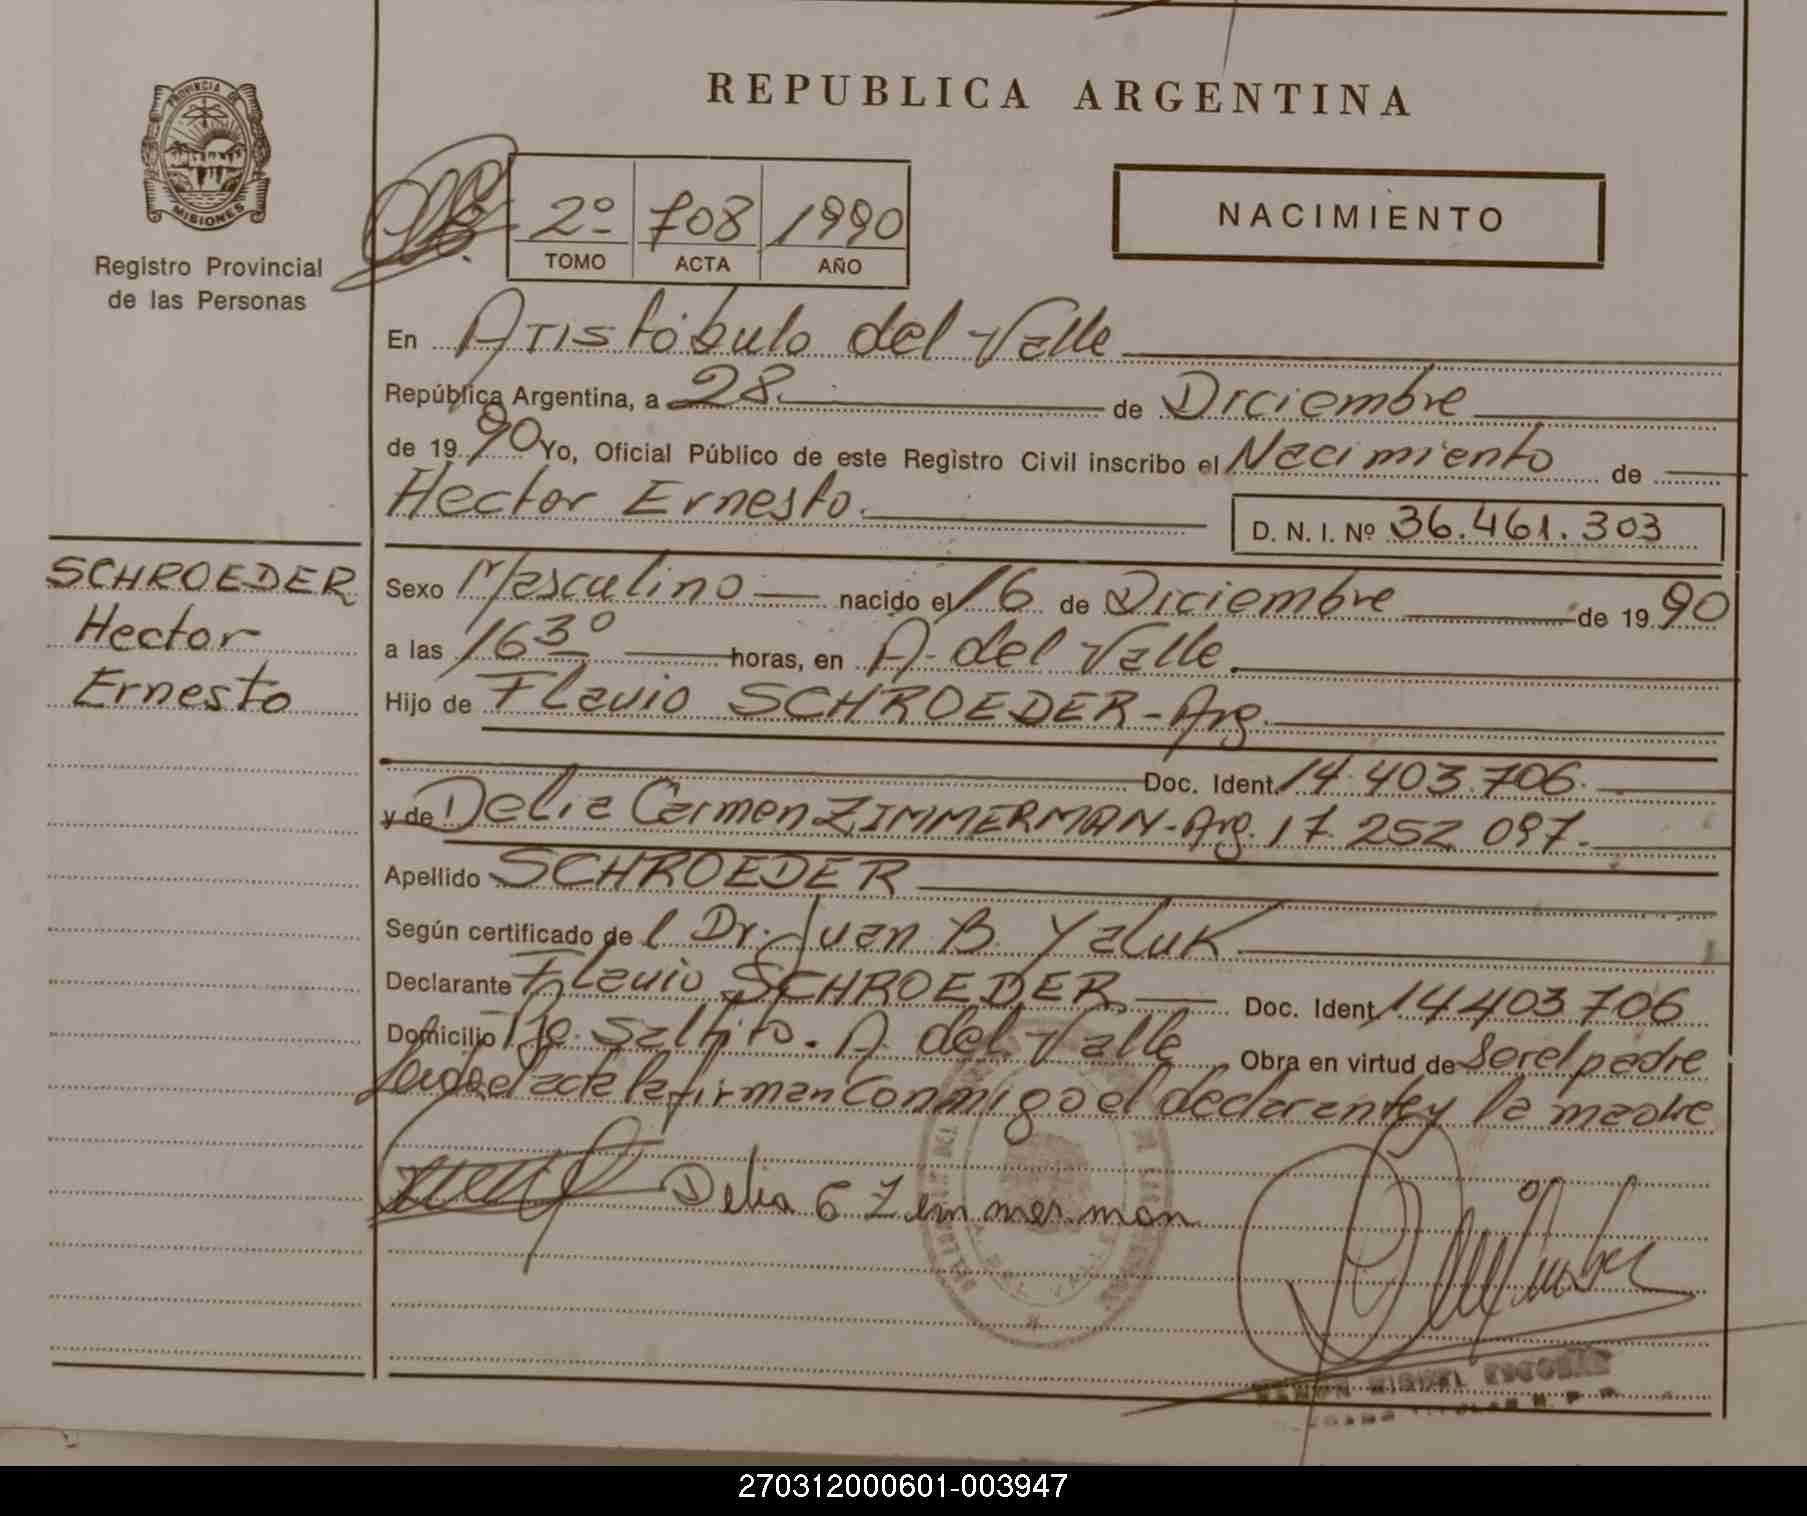 REPUBLICA ARGENTINA
PROVINCIA DE
MISIONES
Registro Provincial
de las Personas
2º 708 1990
TOMO ACTA AÑO
NACIMIENTO
En Aristóbulo del Valle
República Argentina, a 28 de Diciembre
de 1990 Yo, Oficial Público de este Registro Civil inscribo el Nacimiento de
Hector Ernesto. D. N. I. Nº 36.461.303
SCHROEDER
Hector
Ernesto
Sexo Masculino nacido el 16 de Diciembre de 1990
a las 16 3º horas, en A. del Valle.
Hijo de Flavio SCHROEDER - Arg.
Doc. Ident. 14.403.706.
y de Delia Carmen ZIMMERMAN - Arg. 17.252 097.
Apellido SCHROEDER
Según certificado de l Dr. Juan B. Yaluk
Declarante Flavio SCHROEDER Doc. Ident 14403706
Domicilio Saltito. A. del Valle Obra en virtud de Ser el padre
Leida el acta la firman conmigo el declarante y la madre
Delia C Zemmerman
RAMON MIGUEL ESCOBAR
270312000601-003947